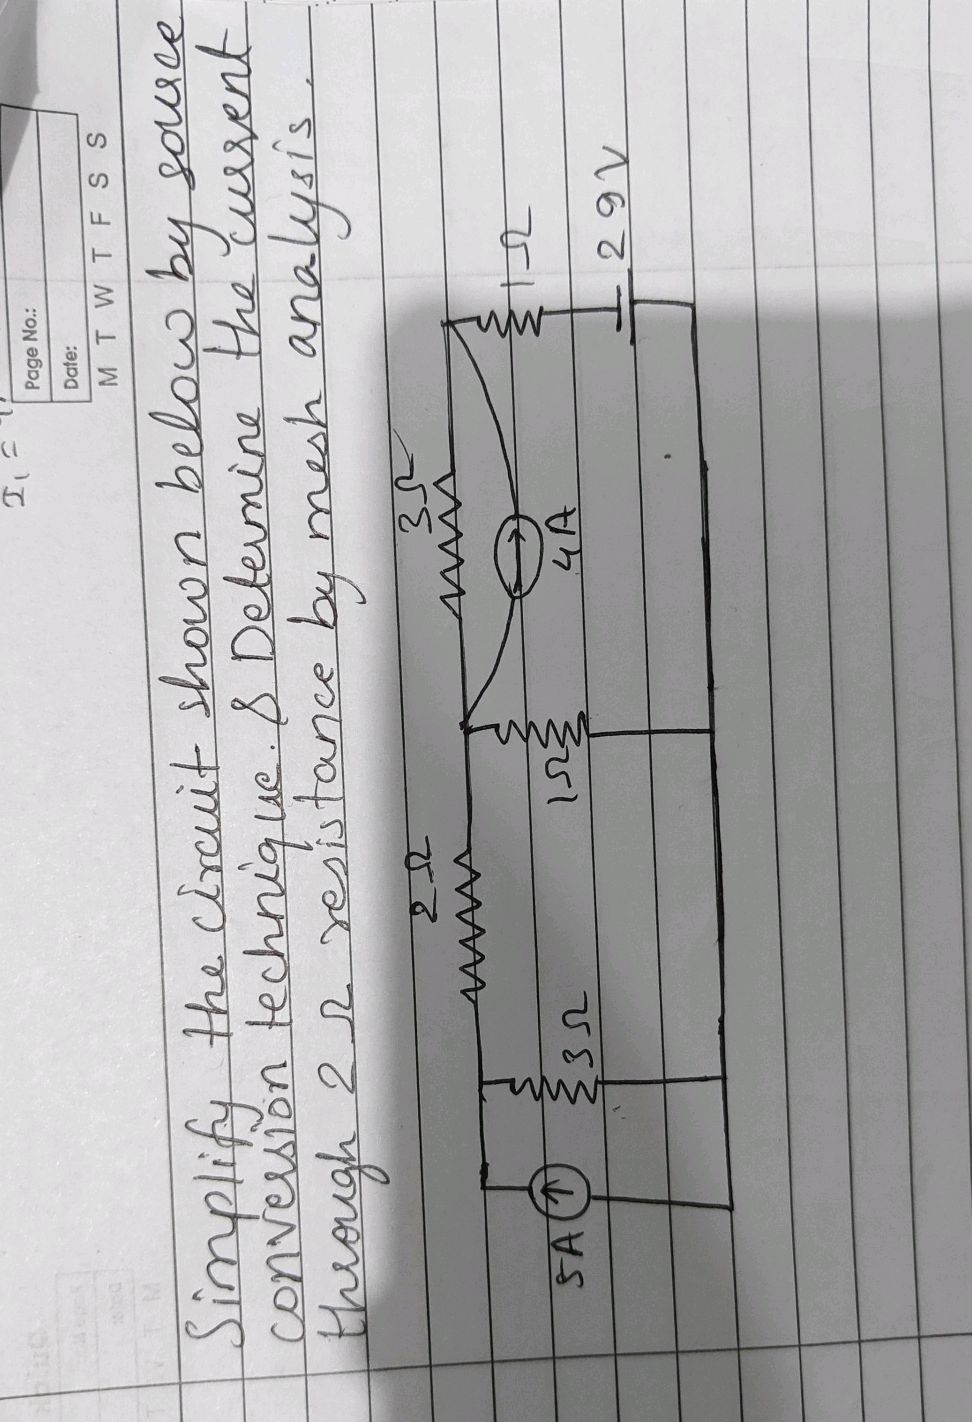 I₁ =
Page No.:
Date:
M T W T F S S
Simplify the circuit shown below by source
conversion technique. & Determine the current
through 2 Ω resistance by mesh analysis.
2Ω
3Ω
5A
3Ω
1Ω
4A
1Ω
29V